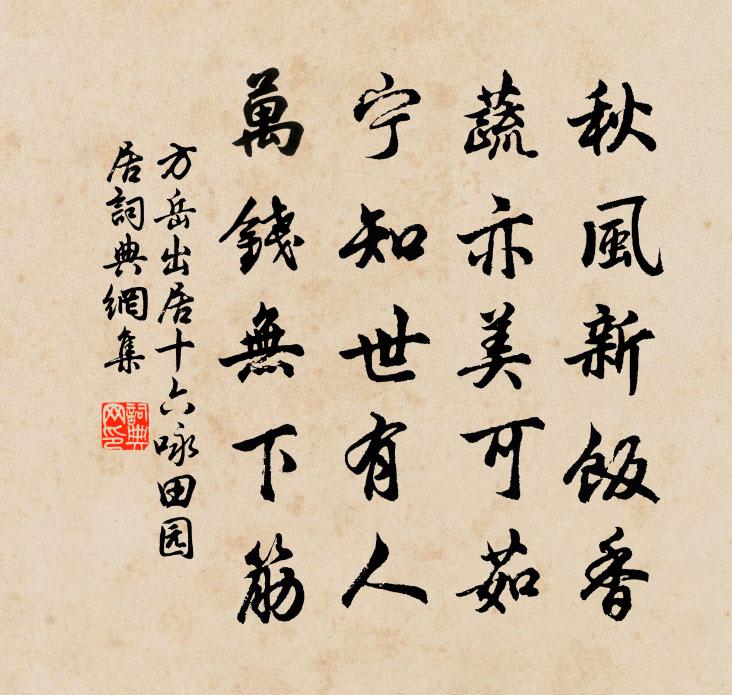 秋風新飯香
蔬亦美可茹
宁知世有人
萬錢無下筋
方岳出居十六咏田园
居詞典網集
詞典网印